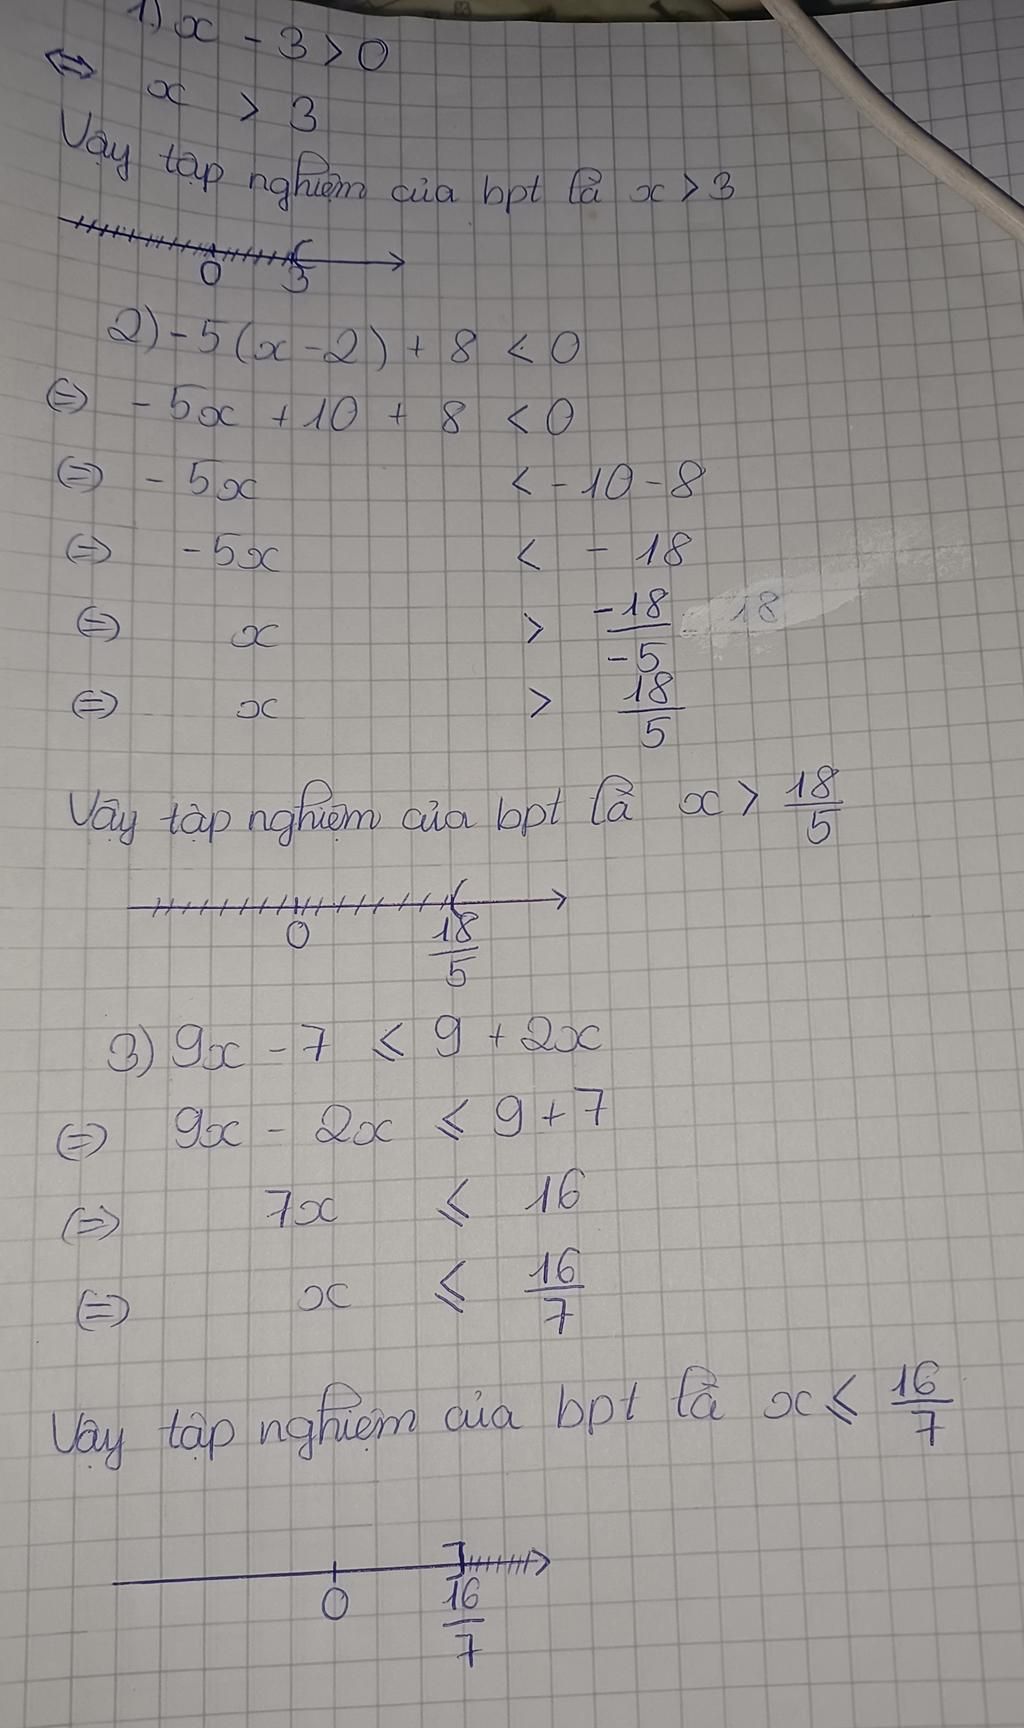 1) x - 3 > 0
⇔ x > 3
Vậy tập nghiệm của bpt là x > 3
0 3
2) -5(x - 2) + 8 < 0
(=) -5x + 10 + 8 < 0
(=) -5x < -10 - 8
(=) -5x < -18
(=) x > -18/-5 18
(=) x > 18/5
Vậy tập nghiệm của bpt là x > 18/5
0 18/5
3) 9x - 7 ⩽ 9 + 2x
(=) 9x - 2x ⩽ 9 + 7
(=) 7x ⩽ 16
(=) x ⩽ 16/7
Vậy tập nghiệm của bpt là x ⩽ 16/7
0 16/7